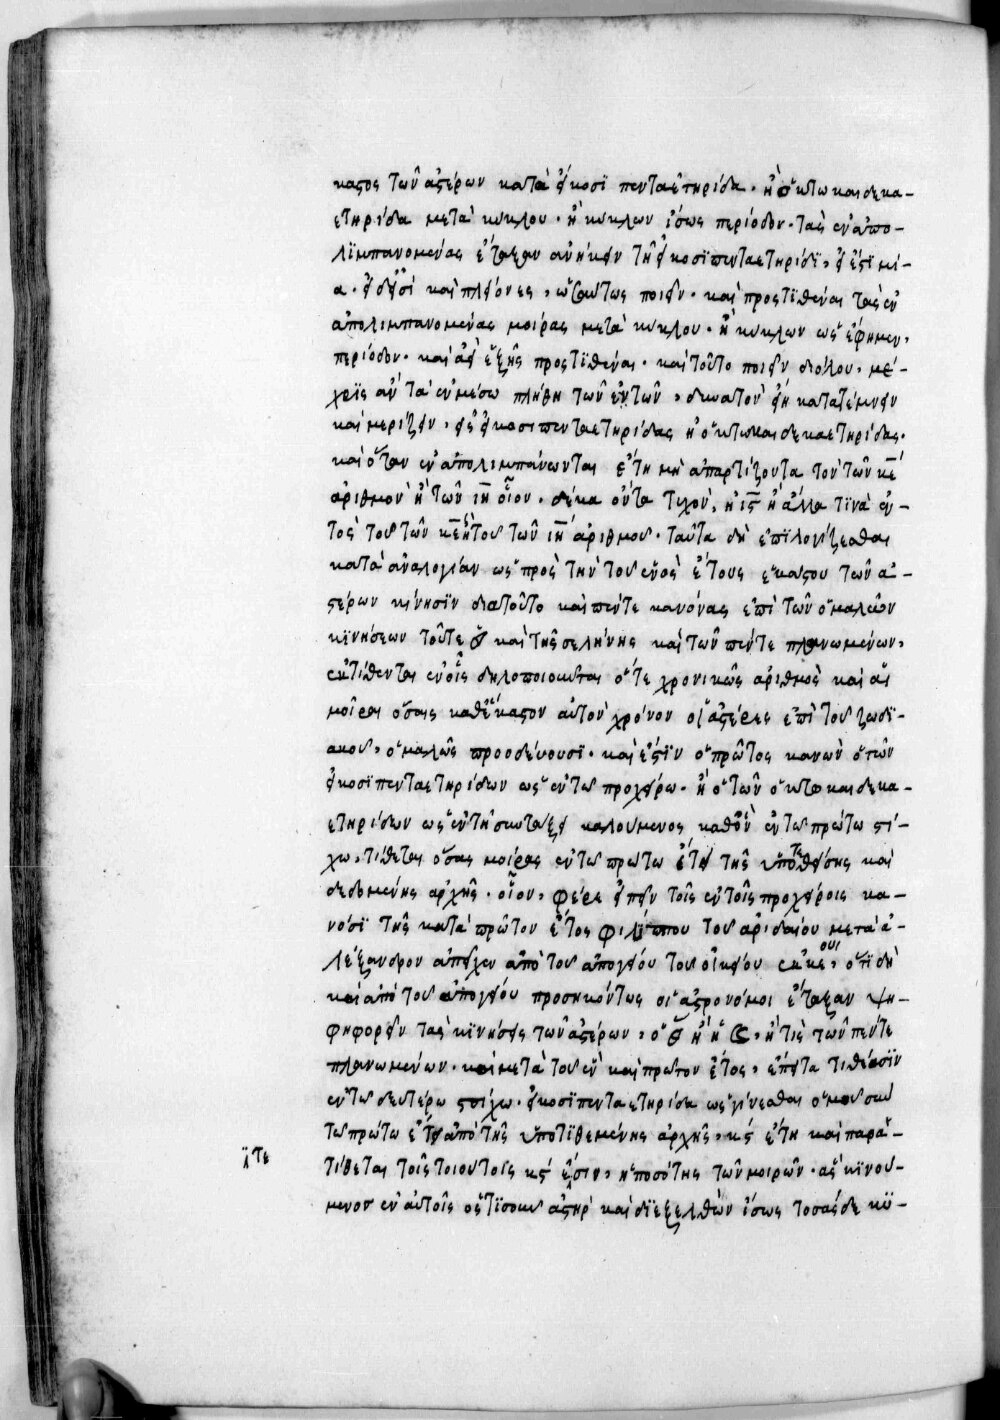 καστος τῶν ἀστέρων κατὰ εἰκοσιπενταετηρίδα · ἢ ὀκτωκαιδεκα-
ετηρίδα μετὰ κύκλου · ἢ κύκλων ἴσως περίοδον · τὰς ἐναπο-
λιμπανομένας ἔταξαν ἀνήκειν τῇ εἰκοσιπενταετηρίδι, εἰ ἔστι μί-
α · εἰ δ' εἰσὶ καὶ πλείονες, ὡσαύτως ποιεῖν · καὶ προστιθέναι τὰς ἐν
απολιμπανομένας μοίρας μετὰ κύκλου · ἢ κύκλων ὡς ἔφημεν,
περίοδον · καὶ ἀφ' ἑξῆς προστιθέναι · καὶ τοῦτο ποιεῖν διόλου, μέ-
χρις ἂν τὰ ἐν μέσω πλήθη τῶν ἐτῶν, δυνατὸν εἴη κατατέμνειν
καὶ μερίζειν, εἰς εἰκοσιπενταετηρίδας ἢ ὀκτωκαιδεκαετηρίδας ·
καὶ ὅταν ἐναπολιμπάνωνται ἔτη μὴ ἀπαρτίζοντα τὸν τῶν κε
ἀριθμὸν ἢ τῶν ιη οἷον · δέκα ὄντα τυχὸν, ἢ ις ἢ ἄλλα τινὰ ἐν-
τὸς τοῦ τῶν κε ἢ τοῦ τῶν ιη ἀριθμοῦ · ταῦτα δὴ ἐπιλογίζεσθαι
κατὰ ἀναλογίαν ὡς πρὸς τὴν τοῦ ἑνὸς ἔτους ἑκάστου τῶν ἀ-
στέρων κίνησιν διατοῦτο καὶ πέντε κανόνας ἐπὶ τῶν ὁμαλῶν
κινήσεων τοῦτε ☉ καὶ τῆς σελήνης καὶ τῶν πέντε πλανωμένων,
ἐκτίθενται ἐν οἷς δηλοποιοῦνται ὅτε χρονικὸς ἀριθμὸς καὶ αἱ
μοῖραι ὅσας καθ' ἕκαστον αὐτὸν χρόνον οἱ ἀστέρες ἐπὶ τοῦ ζωδι-
ακοῦ, ὁμαλῶς προοδεύουσι · καὶ ἔστιν ὁ πρῶτος κανὼν ὁ τῶν
εἰκοσιπενταετηρίδων ὡς ἐν τῶ προχείρω · ἢ ὁ τῶν ὀκτωκαιδεκα-
ετηρίδων ὡς ἐν τῇ συντάξει καλούμενος καθ' ὃν ἐν τῶ πρώτω στί-
χω, τίθεται ὅσας μοίρας ἐν τῶ πρώτω ἔτει τῆς ὑποτεθείσης καὶ
δεδομένης ἀρχῆς · οἷον, φέρε εἰπεῖν τοῖς ἐν τοῖς προχείροις κα-
νόσι τῆς κατὰ πρῶτον ἔτος φιλίππου τοῦ ἀριδαίου μετὰ ἀ-
λέξανδρον ἀπεῖχεν ἀπὸ τοῦ ἀπογείου τοῦ οἰκείου ἐκκε, ὅτι δὴ
καὶ ἀπὸ τοῦ ἀπογείου προσηκόντως οἱ ἀστρονόμοι ἔταξαν ψη-
φηφορεῖν τὰς κινήσεις τῶν ἀστέρων, ὁ ☉ ἢ ἡ ☾, ἤ τις τῶν πέντε
πλανωμένων · καὶ μετὰ τοῦ ἓν καὶ πρῶτον ἔτος, ἔπειτα τιθέασιν
ἐν τῶ δευτέρω στίχω · εἰκοσιπενταετηρίδα ὡς γίνεσθαι ὁμοῦ σὺν
τῶ πρώτω ἔτει ἀπὸ τῆς ὑποτιθεμένης ἀρχῆς, κς ἔτη καὶ παρα-
τίθεται τοῖς τοιούτοις κς ἔσιν, ἡ ποσότης τῶν μοιρῶν · ἃς κινού-
ϊτε
μενος ἐν αὐτοῖς ὅστισοῦν ἀστὴρ καὶ διεξελθὼν ἴσως τοσάσδε κύ-